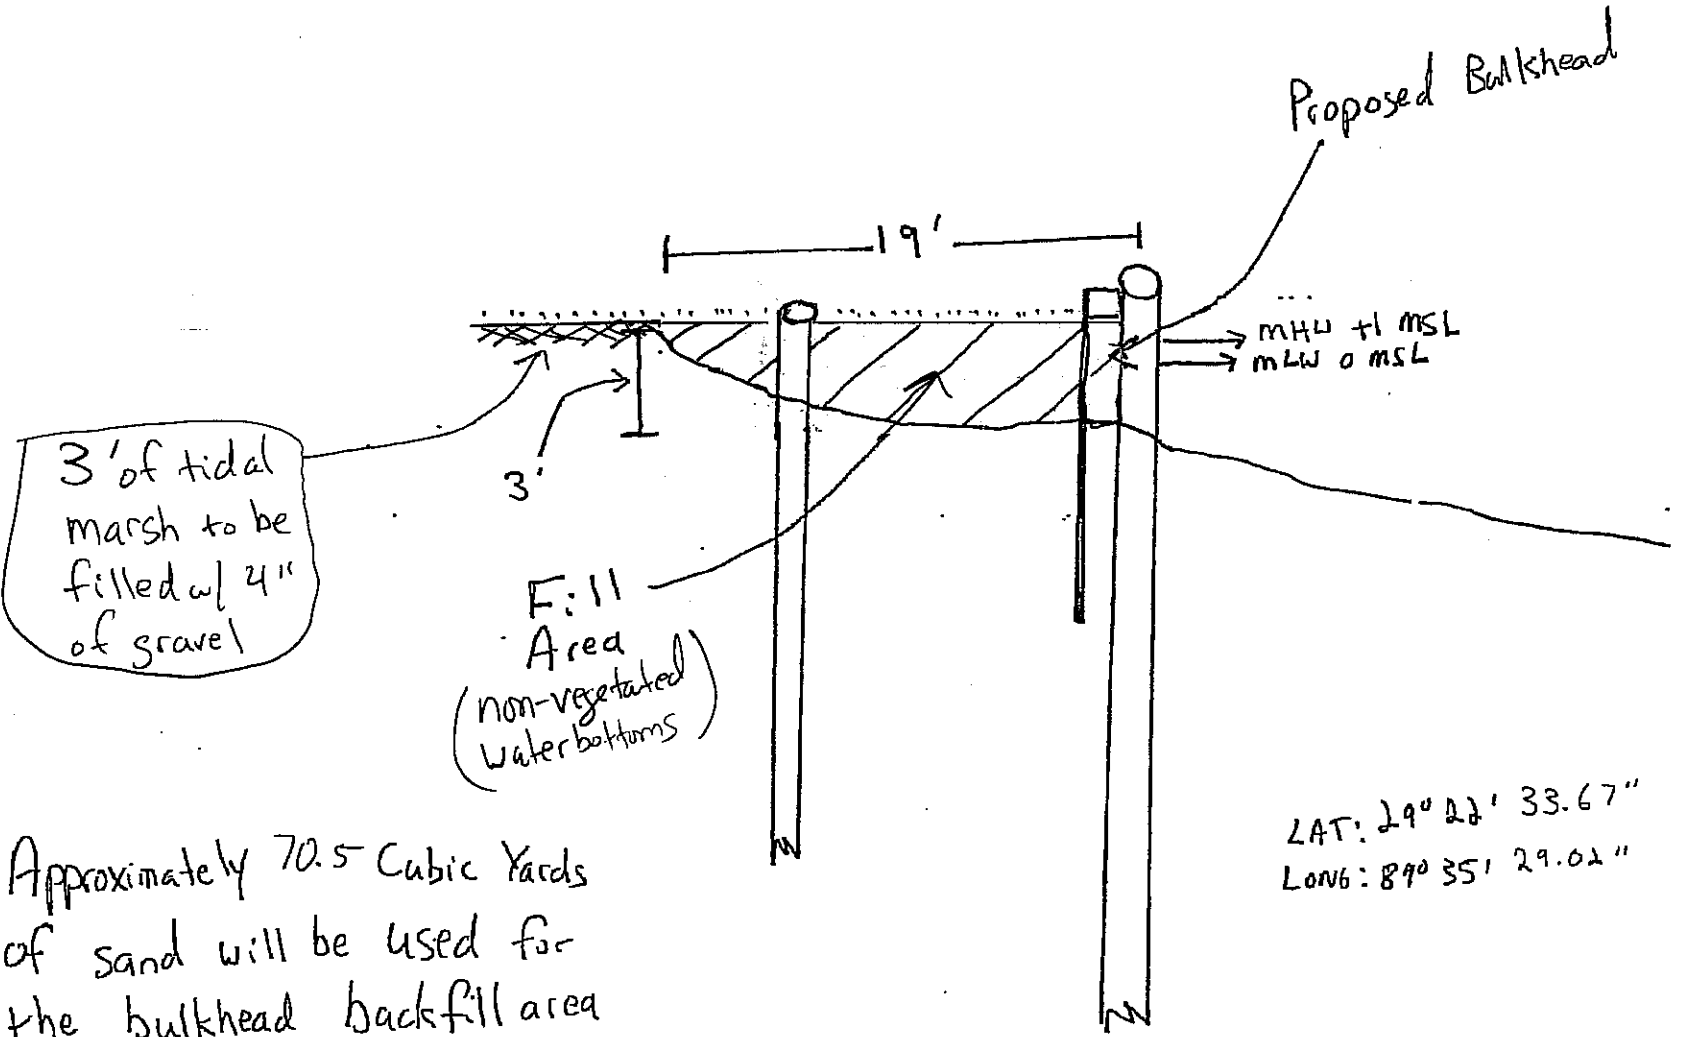 Proposed Bulkhead
19'
MHW +1 MSL
MLW 0 MSL
3' of tidal
marsh to be
filled w/ 4"
of gravel
3'
Fill
Area
(non-vegetated
waterbottoms)
LAT: 29° 22' 33.67"
LONG: 89° 35' 29.02"
Approximately 70.5 Cubic Yards
of sand will be used for
the bulkhead backfill area